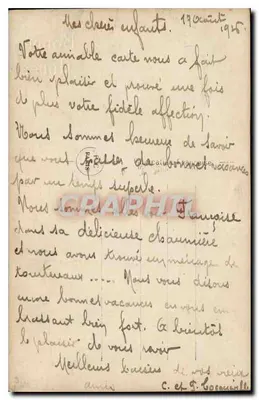 Mes chers enfants. 19 août 1926
Votre aimable carte nous a fait
bien plaisir et prouvé une fois
de plus votre fidèle affection.
Nous sommes heureux de savoir
que vous passez de bonnes vacances
par un temps superbe.
Nous sommes chez Françoise
dans sa délicieuse chaumière
et nous avons trouvé un ménage de
tourtereaux..... Nous vous disons
encore bonnes vacances en vous em-
brassant bien fort. A bientôt
le plaisir de vous revoir
Meilleurs baisers de vos vieux
amis C. et P.